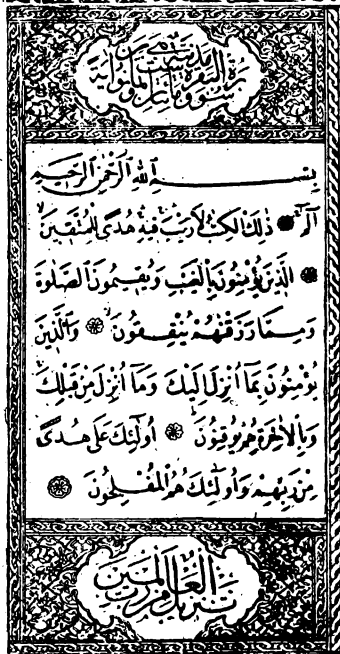 سورة البقرة مدنية
بِسْمِ ٱللَّهِ ٱلرَّحْمَٰنِ ٱلرَّحِيمِ
الٓمٓ ذَٰلِكَ ٱلْكِتَٰبُ لَا رَيْبَ فِيهِ هُدًى لِّلْمُتَّقِينَ
ٱلَّذِينَ يُؤْمِنُونَ بِٱلْغَيْبِ وَيُقِيمُونَ ٱلصَّلَوٰةَ
وَمِمَّا رَزَقْنَٰهُمْ يُنفِقُونَ وَٱلَّذِينَ
يُؤْمِنُونَ بِمَآ أُنزِلَ إِلَيْكَ وَمَآ أُنزِلَ مِن قَبْلِكَ
وَبِٱلْأَخِرَةِ هُمْ يُوقِنُونَ أُولَٰٓئِكَ عَلَىٰ هُدًى
مِّن رَّبِّهِمْ وَأُولَٰٓئِكَ هُمُ ٱلْمُفْلِحُونَ
تنزيل من رب العالمين